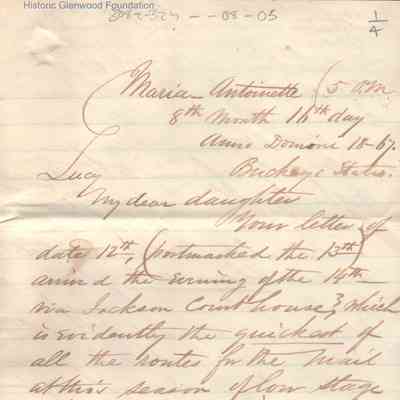 Historic Glenwood Foundation
- - 08 - 05
1/4
Maria Antoinette (5 A.M.
8th Month 16th day
Anno Domini 18-67.
Buckeye State.
Lucy
My dear daughter
Your letter of
date 12th, (postmarked the 13th)
arriv'd the Evening of the 14th
via Jackson Court house, which
is evidently the quickest of
all the routes for the mail
at this season of low stage